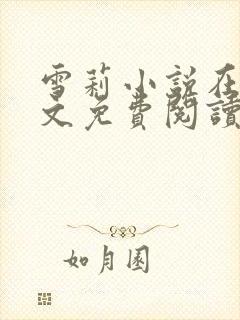 雪莉小說在
文免費閱讀
如月園